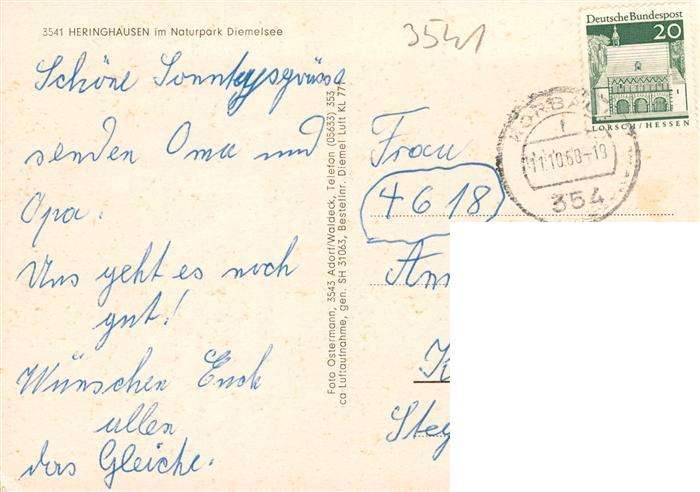 3541 HERINGHAUSEN im Naturpark Diemelsee
3541
Deutsche Bundespost
20
LORSCH/HESSEN
KORBACH
1
11.10.68-19
354
Schöne Sonntagsgrüsse
senden Oma und
Opa.
Uns geht es noch
gut!
Wünschen Euch
allen
das Gleiche.
Foto Ostermann, 3543 Adorf/Waldeck, Telefon (05633) 353
ca Luftaufnahme, gen. SH 31063, Bestellnr. Diemel Luft KL 777
Frau
4618